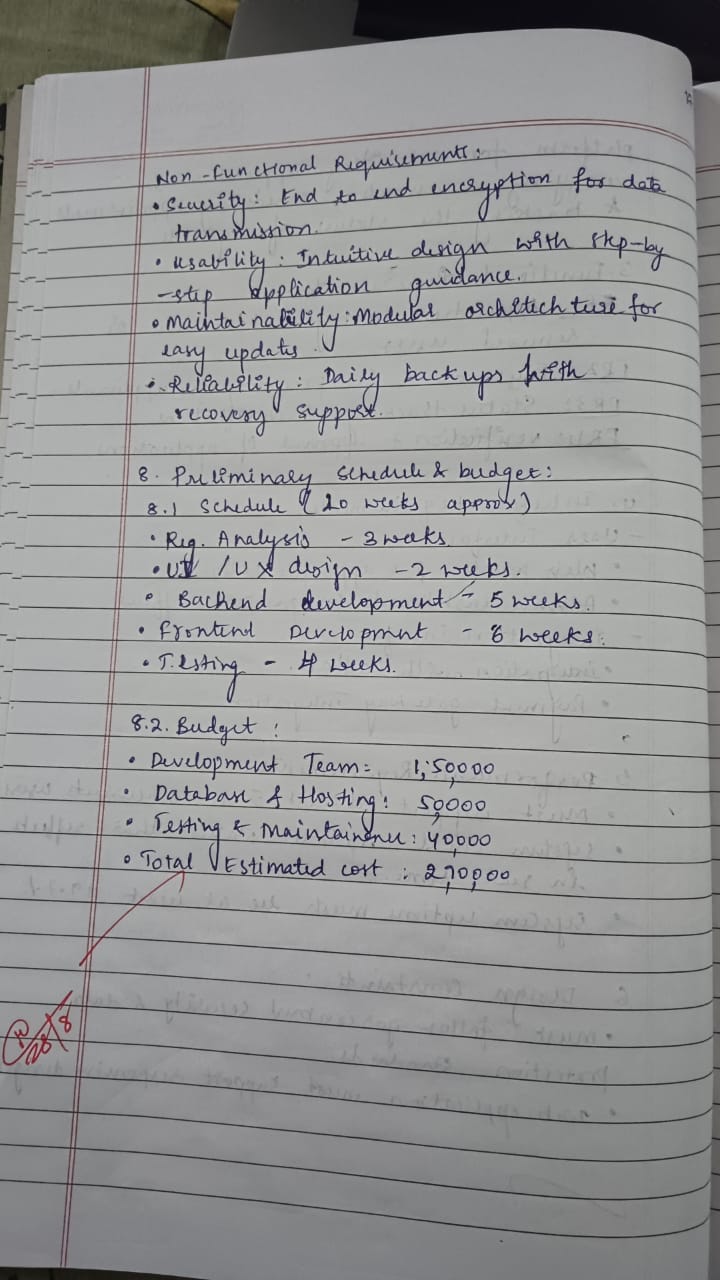 Non-functional Requirements:
• Security: End to end encryption for data
transmission.
• usability: Intuitive design with step-by
-step application guidance.
• Maintainability: Modular architechture for
easy updates.
• Reliability: Daily backups with
recovery support.
8. Preliminary schedule & budget:
8.1 Schedule (20 weeks approx)
• Req. Analysis - 3 weeks
• UI /UX design - 2 weeks.
• Backend development - 5 weeks.
• frontend Development - 6 weeks.
• Testing - 4 weeks.
8.2. Budget:
• Development Team: 1,50,000
• Database & Hosting: 50,000
• Testing & Maintainence: 40,000
• Total Estimated cost: 2,70,000
28/8